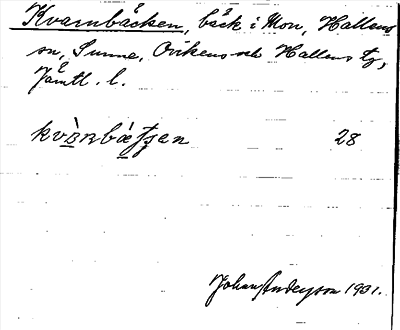 Kvarnbäcken, bäck i Mon, Hallens
sn, Sunne, Ovikens och Hallens tg,
Jämtl. l.
kvὰrnbæ̀ƫʂen 28
Johan Anderson 1931.